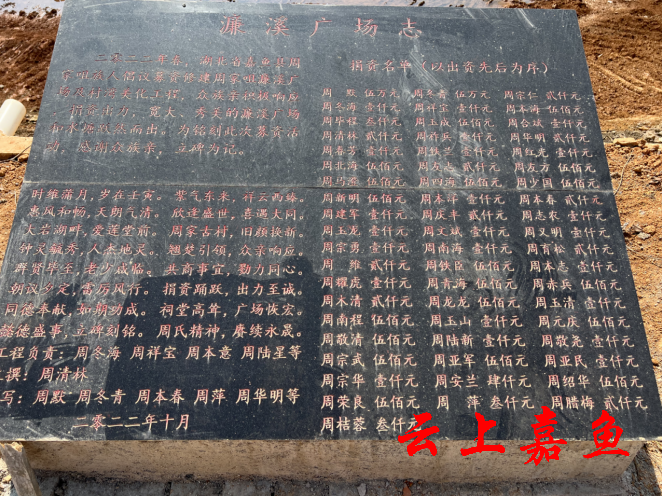 濂溪广场志
二〇二二年春，湖北省嘉鱼县周
家咀族人倡议募资修建周家咀濂溪广
场及村
众族亲积极响应
捐资出力，宽大、秀美的濂溪广场
而出。为铭刻此次募资活
动，感谢众族亲，立碑为记。
时维蒲月，岁在壬寅。紫气东来，祥云西
惠风和畅，天朗气清。欣逢盛世，喜遇大同。
大岩湖畔，爱莲堂前。周家古村，旧颜换新。
钟灵毓秀，人杰地灵。翘楚引领，众亲响应。
群贤毕至，老少咸临。共商事宜，勠力同心。
朝议夕定，雷厉风行。捐资踊跃，出力至诚。
同德奉献，如期功成。祠堂高耸，广场恢宏。
懿德盛事，立碑刻铭。周氏精神，赓续永晟。
工程负责：周冬海 周祥宝 周本意 周陆星等
撰：周清林
写：周默 周冬青 周本春 周萍 周华明等
二零二二年十月
捐资名单（以出资先后为序）
周 默 伍万元 周冬青 伍万元 周宗仁 贰仟元
周冬海 壹仟元 周祥宝 壹仟元 周本海 伍佰元
周毕 壹仟元 周玉成 伍佰元 周合斌 壹仟元
周清林 贰仟元 周祥兵 仟元 周华明 贰仟元
周春芳 壹仟元 周铁兰 壹仟元 周红光 壹仟元
周北海 贰仟元 周 贰仟元 周友方 伍佰元
周马 伍佰元 周四海 伍佰元 周少国 伍佰元
周新明 伍佰元 周本洋 壹仟元 周本春 贰仟元
周建军 壹仟元 周庆丰 贰仟元 周志农 壹仟元
周玉龙 壹仟元 周文斌 壹仟元 周又明 壹仟元
周宗勇 壹仟元 周南海 贰仟元 周育松 贰仟元
周 雅 贰仟元 周铁臣 伍佰元 周本志 壹仟元
周耀虎 壹仟元 周青海 伍佰元 周赤兵 伍佰元
周木清 贰仟元 周龙龙 伍佰元 周玉清 壹仟元
周南程 伍佰元 周玉山 壹仟元 周元庆 伍佰元
周敬清 伍佰元 周陆新 壹仟元 周敬尧 壹仟元
周宗武 伍佰元 周亚军 伍佰元 周亚民 壹仟元
周宗华 壹仟元 周安兰 肆仟元 周绍华 伍佰元
周荣良 伍佰元 周 萍 叁仟元 周腊梅 贰仟元
周桔蓉 叁仟元
云上嘉鱼